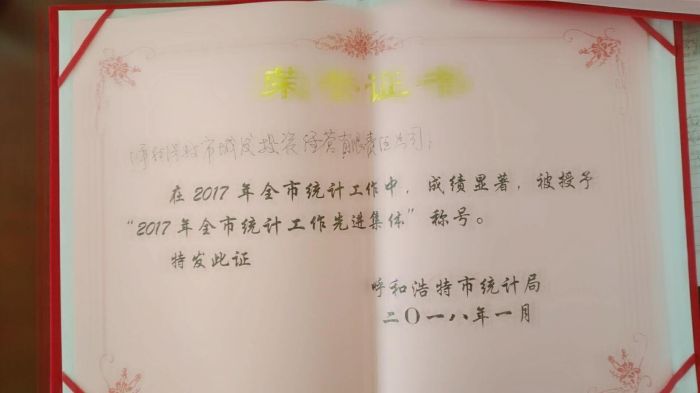 荣誉证书
呼和浩特市城发投资经营有限责任公司:
在2017年全市统计工作中,成绩显著,被授予
“2017年全市统计工作先进集体”称号。
特发此证
呼和浩特市统计局
二〇一八年一月